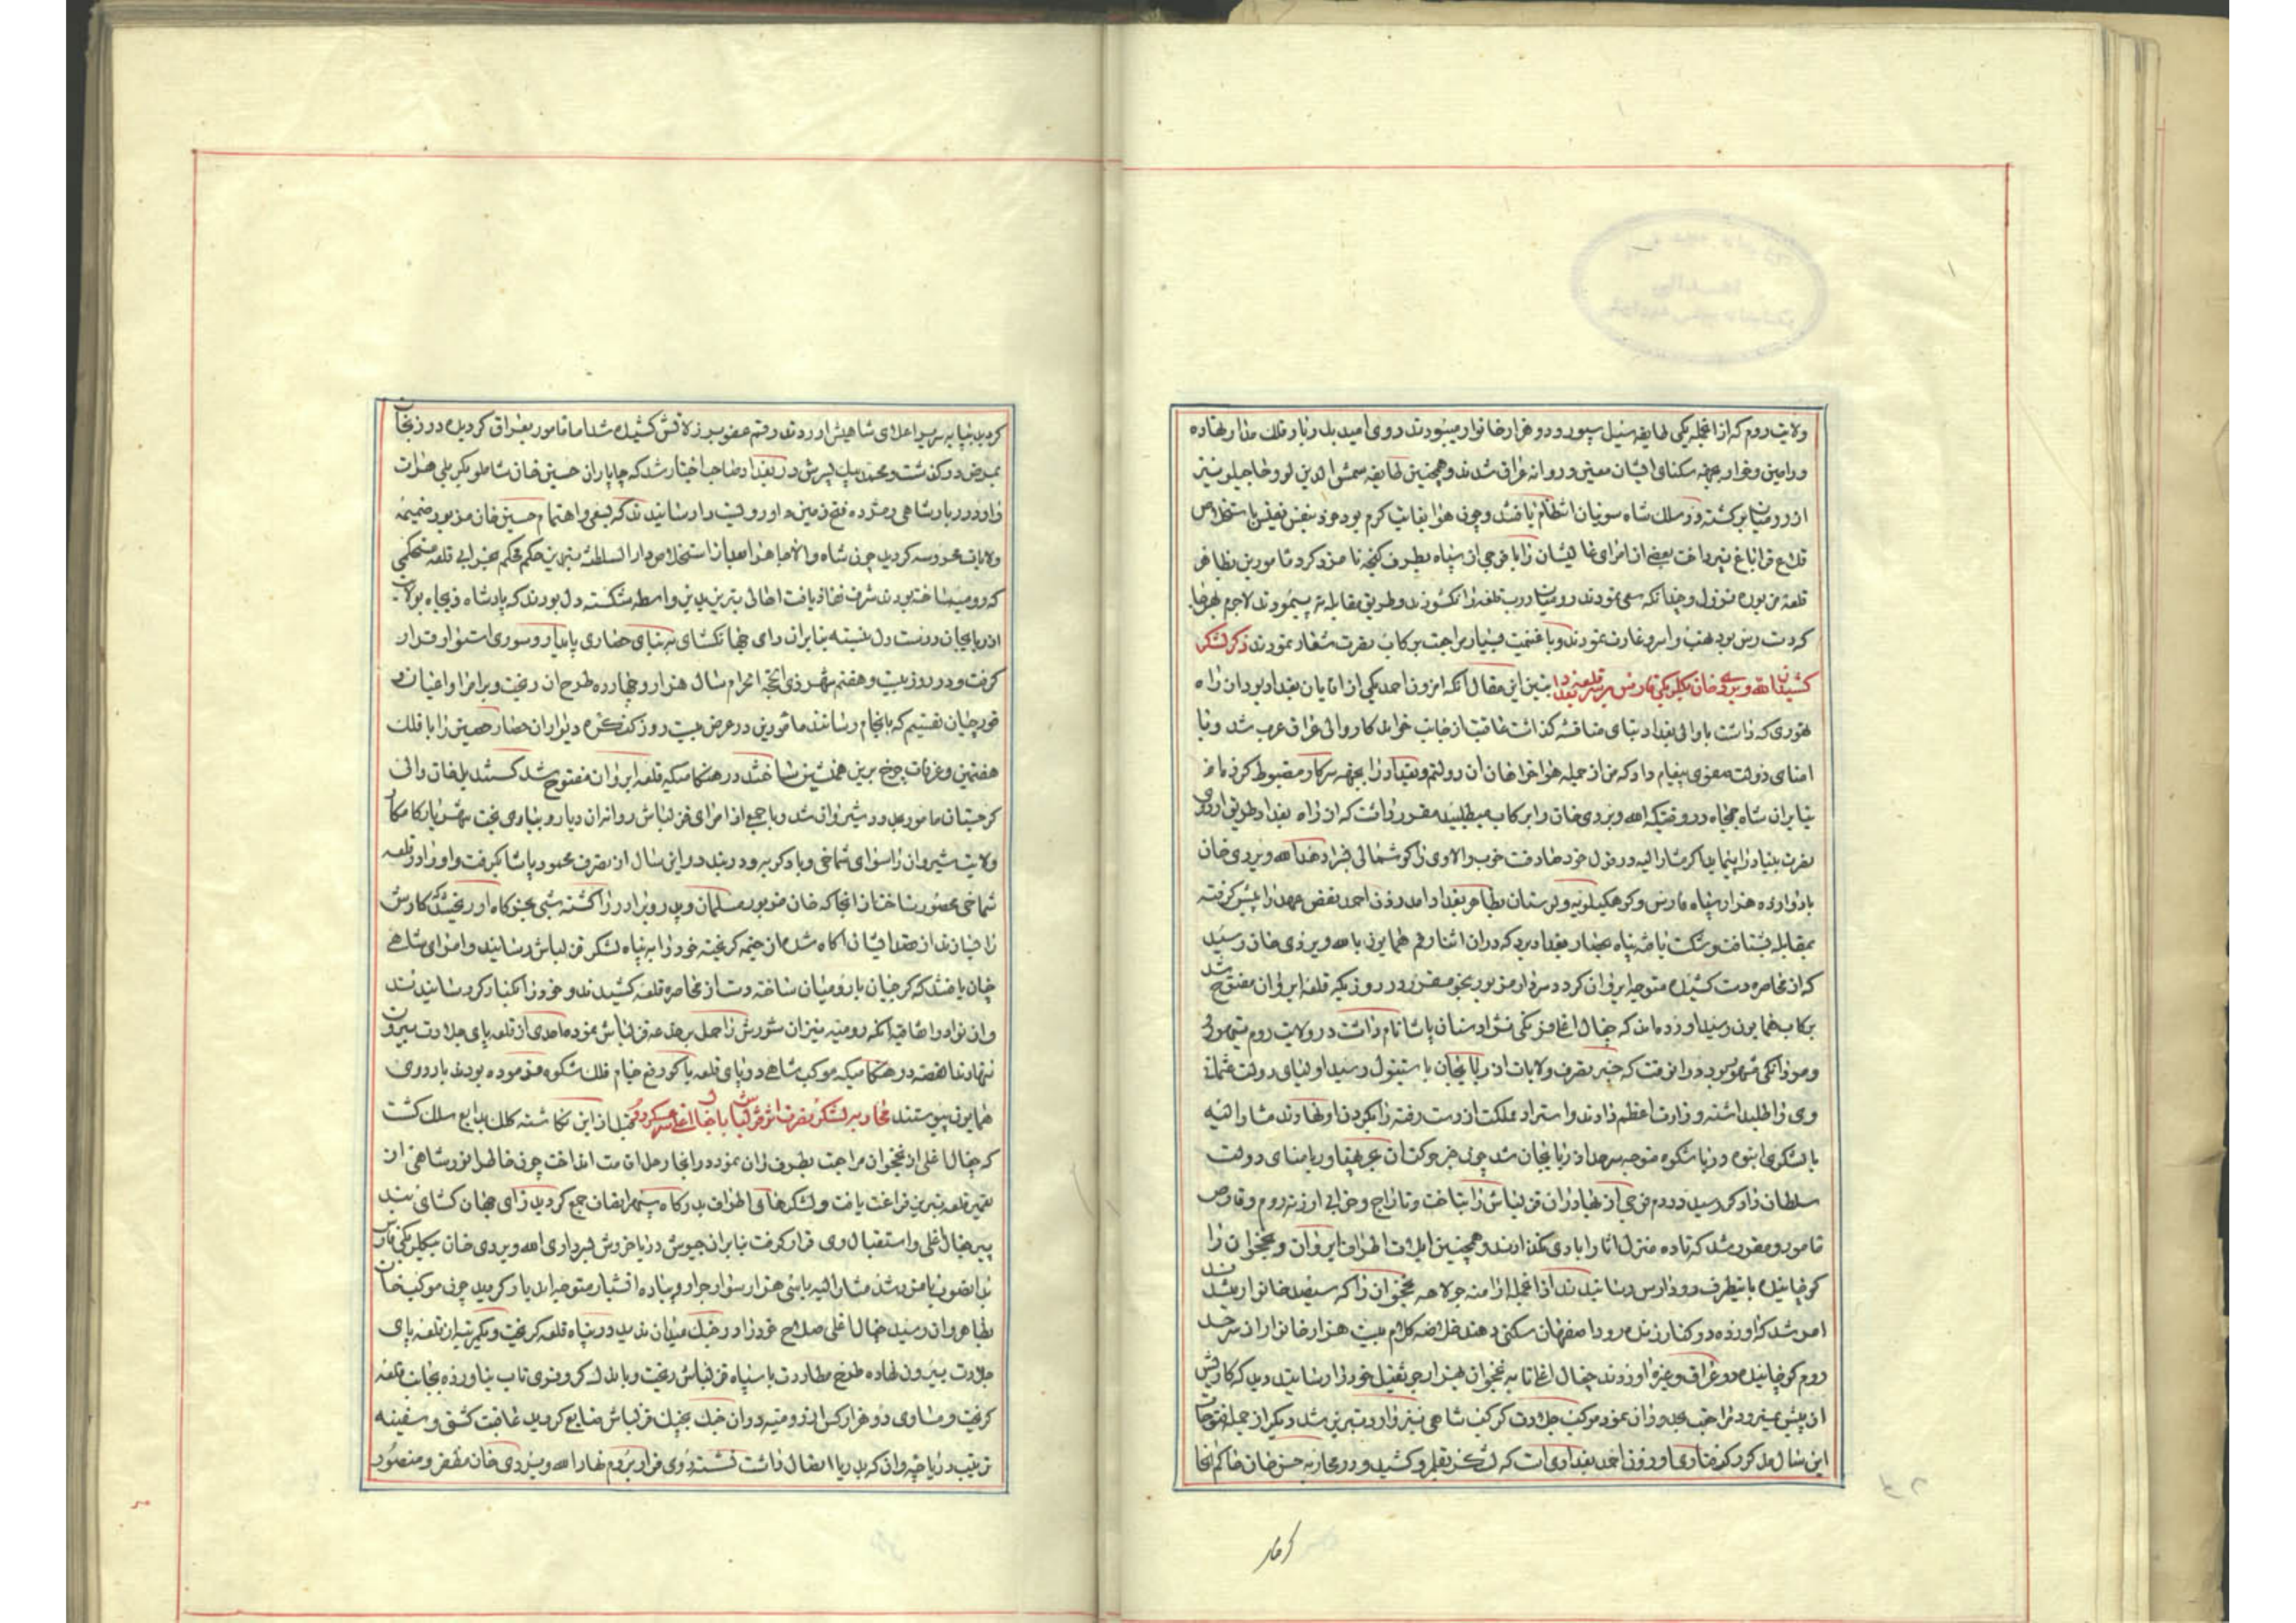 ولایت روم که از انجمله یکی طایفه سیل سپور و دو هزار خانوار میشوردند روی امید بدربار فلک مدار نهاده
ورامین و خوار بجهه سکنای ایشان معین و روانه عراق شدند و همچنین طایفه شمس الدین لو و حاجیلو نیز
از رومیان برکشته در سلک شاه سونیان انتظام یافتند و چون هوا بغایت کرم بود خود بنفس نفیس باستخلاص
قلاع قراباغ نپرداخت بعضی از امرای عالیشان را با فوجی از سپاه بطرف کنجه نامزد کرد مامورین بظاهر
قلعه مزبوره نزول و چندانکه سعی نمودند رومیان درب قلعه را نکشودند و طریق مقابله نه پیمودند لاجرم بهرجا
که دست رس بود نهب و اسر و غارت نمودند و با غنیمت بسیار مراجعت برکاب نصرت شعار نمودند ذکر لشکر
کشیدن الله ویردی خان بیکلربیکی فارس بر سر قلعه بغداد تبیین این مقال آنکه اوزون احمد یکی از اقایان بغداد بود ان راه
تهوری که داشت با والی بغداد بنای مناقشه کذاشت عاقبت از جانب خواندکار والی عراق عرب شد و با
امنای دولت صفوی پیغام داد که من از جمله هواخواهان ان دولتم و بغداد را بجهه سرکار مضبوط کرده ام
بنابران شاه جمجاه در وقتیکه الله ویردی خان را برکاب میطلبید مقرر داشت که از راه بغداد طریق اردوی
نصرت بنیاد را پیماید اکر مشارالیه در قول خود صادقت خوب والا وی را کوشمالی بسزا دهد الله ویردی خان
با دوازده هزار سپاه فارس و کوهکیلویه و لرستان بظاهر بغداد آمد اوزن احمد نقض عهد را پیش کرفته
بمقابله شتافت و شکست یافته پناه بحصار بغداد برد که دران اثنا رقم همایون بالله ویردی خان رسید
که از محاصره دست کشیده متوجه ایروان کردد سردار مزبور بنحو مقرر در روزیکه قلعه ایروان مفتوح شد
برکاب همایون رسید اورده اند که جغال اغلی فرنکی نژاد سنان پاشا نام داشت در ولایت روم بتهور
و مردانکی مشهور بود در انوقت که خبر تصرف ولایات اذربایجان باستنبول رسید اولیای دولت عثمانی
وی را طلب داشته وزارت اعظم دادند و استرداد مملکت از دست رفته را بکردن او نهادند مشارالیه
با لشکری انبوه دریا شکوه متوجه سرحد اذربایجان شد چون خبر حرکت ان بحر پهناور بامنای دولت
سلطان دادکر رسید در دم فوجی از بهادران قزلباش را بتاخت و تاراج و خرابی ارزنه روم و قارص
مامور و مقرر شد که تا ده منزل اثار ابادی نکذارند و همچنین ایلات اطراف ایروان و نخجوان را
کوچانیده باینطرف رود ارس رسانیدند از انجمله ارامنه جولاهه نخجوان را که سیصد خانوار میشدند
امر شد که اورده در کنار زنده رود اصفهان سکنی دهند خلاصه کلام بیست هزار خانوار از سرحد
روم کوچانیده در عراق و غیره اوردند چغال اغلی تا به نخجوان بهزار جر ثقیل خود را رسانید دید که کارش
از پیش نمیرود مراجعت بجلدوران نمود موکب جلادت کوکب شاهی نیز وارد تبریز شد دیکر از جمله فتوحات
این سال مذکور کرفتاری اوزون احمد بغدادی است که لشکر بقلمرو کشید و در محاربه حسن خان حاکم انجا
کرفتار
کردید بپایه سریر اعلای شاهیش اوردند رقم عفو بر زلاتش کشیده شد اما مامور بعراق کردیده در زنجان
بمرض درکذشت و محمد بیک پسرش در بغداد صاحب اختیار شد که چاپاران حسین خان شاملو بیکربیکی هرات
وارد دربار شاهی و مژده فتح زمین داور و بست را رسانیدند که بسعی و اهتمام حسین خان مزبور ضمیمه
ولایات محروسه کردید چون شاه والاجاه هوا بعد از استخلاص دار السلطنه تبریز حکم محکم بخرابی قلعه مستحکمی
که رومیه ساخته بودند شرف نفاذ یافت اهالی تبریز بدین واسطه شکسته دل بودند که پادشاه ذیجاه بولایت
اذربایجان درست دل نبسته بنابران رای جهانکشای به بنای حصاری پایدار و سوری استوار قرار
کرفت و در روز بیست و هفتم شهر ذی الحجه الحرام سال هزار و چهارده طرح ان ریخت و بر امرا و اعیان و
قورچیان تقسیم که باتمام رسانند مامورین در عرض بیست روز کنکره دیوار ان حصار حصین را با فلک
هفتمین و غرفات چرخ برین همنشین ساختند در هنکامیکه قلعه ایروان مفتوح شد کستندیل خان والی
کرجستان مامور بدر شیروان شد و با جمعی از امرای قزلباش روانه ان دیار و بیاری بخت شهریار کامکار
ولایت شیروان را سوای شماخی و بادکوبه و دربند در این سال از تصرف محمود پاشا بکرفت و او را در قلعه
شماخی محصور ساخت از انجا که خان مزبور مسلمان و پدر و برادر را کشته شبی بخرکاه او ریختند که کارش
را بسازند از قصد ایشان اکاه شده از خیمه کریخته خود را به پناه لشکر قزلباش رسانید و امرای شاهی
چنان یافتند که کرجیان با رومیان ساخته دست از محاصره قلعه کشیدند و خود را بکنار کر رسانیدند
واز نوادر اتفاقیه آنکه رومیه نیز ان شورش را حمل بر خدعه قزلباش نموده احدی از قلعه پای جلادت بیرون
ننهادند القصه در هنکامیکه موکب شاهی در پای قلعه باکو رفع خیام فلک شکوه فرموده بودند باردوی
همایون پیوستند محاربه لشکر نصرت اثر قزلباش با چغال اغلی سر عسکر روم قبل از این نکاشته کلک بدایع سلک کشت
که چغال اغلی از نخجوان مراجعت بطرف وان نمود در انجا رحل اقامت انداخت چون خاطر انور شاهی از
تعمیر قلعه تبریز فراغت یافت و لشکرهای اطراف بدرکاه سپهر اتفاق جمع کردید رای جهان کشای به تنبیه
پیر جغال اغلی و استقبال وی قرار کرفت بنابران جیوش دریا خروش بسرداری الله ویردی خان بیکلربیکی فارس
بدانصوب نامزد شد مشارالیه با سی هزار سوار جرار و پیاده اتشبار متوجه ان دیار کردید چون موکب خان
بظاهر وان رسید چغال اغلی صلاح خود را در جنک میدان ندید در پناه قلعه کریخت و یکمرتبه از قلعه پای
جلادت بیرون نهاده طرح مطاردت با سپاه قزلباش ریخت و باندک کروفری تاب نیاورده بجانب قلعه
کریخت و مساوی دو هزار کس از رومیه دران جنک بجنک قزلباش ضایع کردید عاقبت کشتی و سفینه
ترتیب دریاچه وان که بدریا اتصال داشت نشسته روی فرار بروم نهاد الله ویردی خان مظفر و منصور